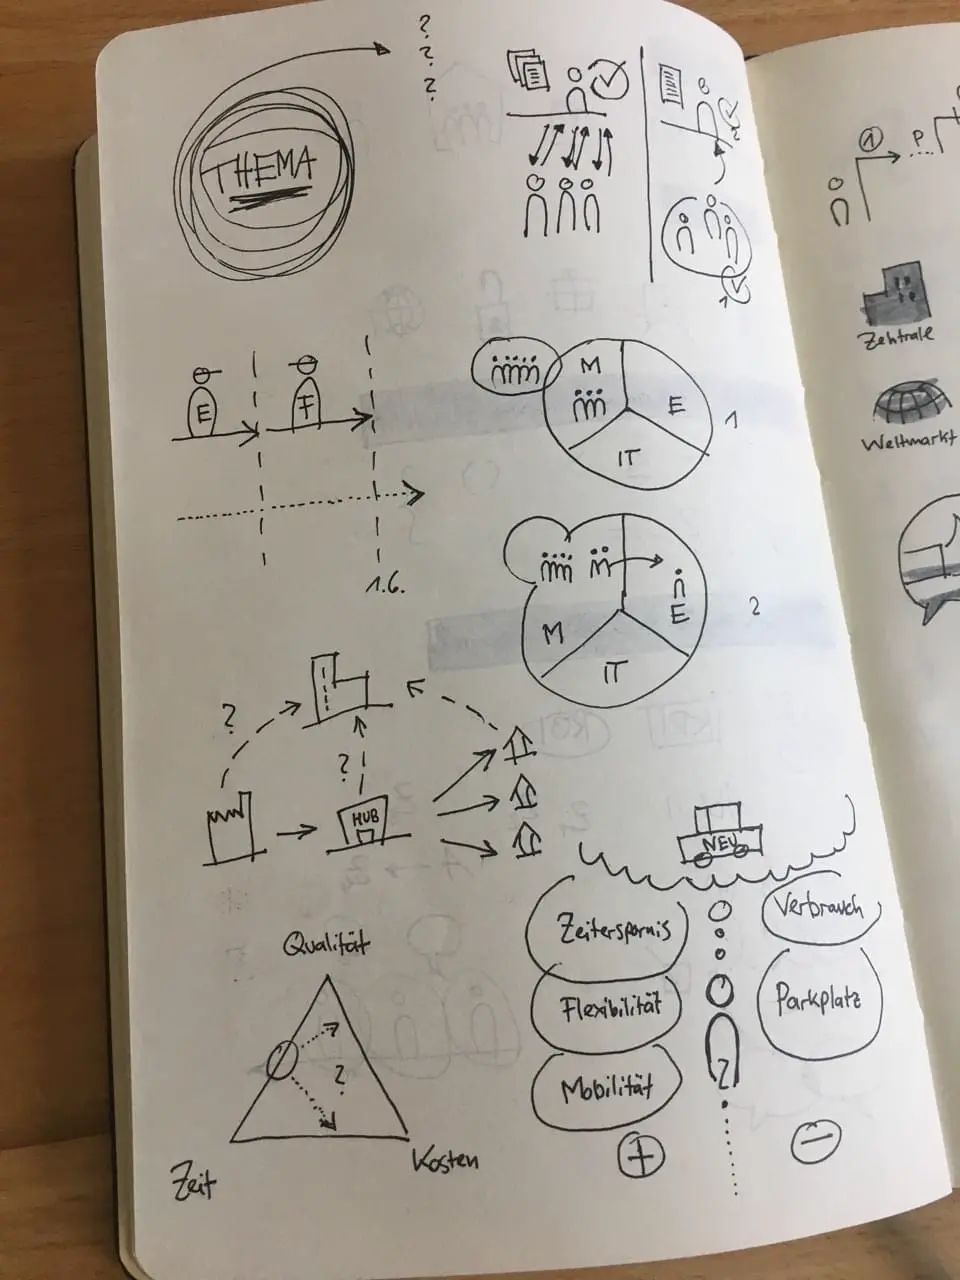 ?
?
?
THEMA
2
1
E
F
1.6.
M
E
IT
1
M
E
IT
2
?
?
HUB
Qualität
?
Zeit
Kosten
NEU
Zeiterspornis
Flexibilität
Mobilität
Verbrauch
Parkplatz
?
+
−
1
P.
Zentrale
Weltmarkt